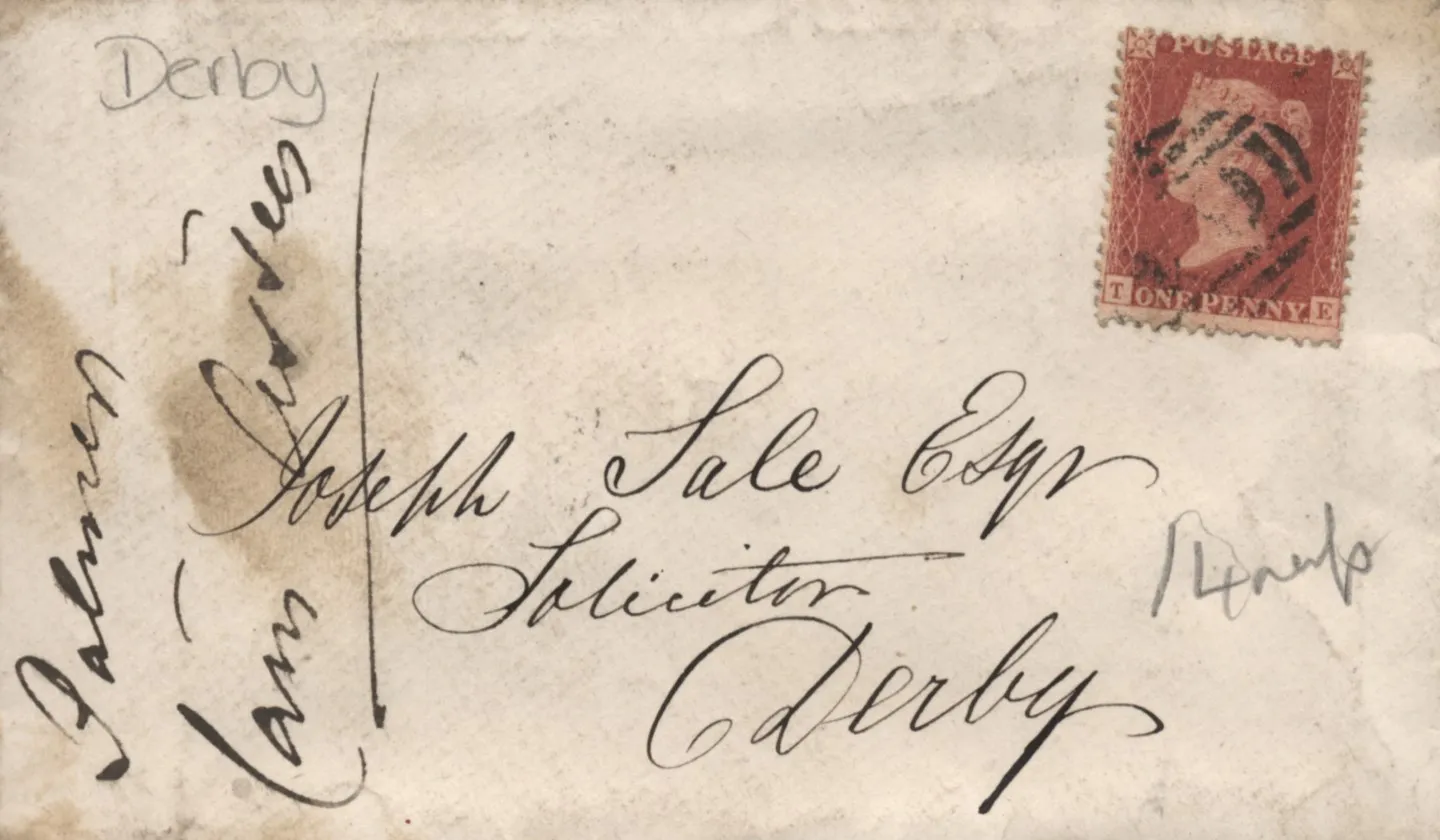 Derby
POSTAGE
ONE PENNY.
T E
Palmer
Joseph Sale Esqr
Solicitor
Derby